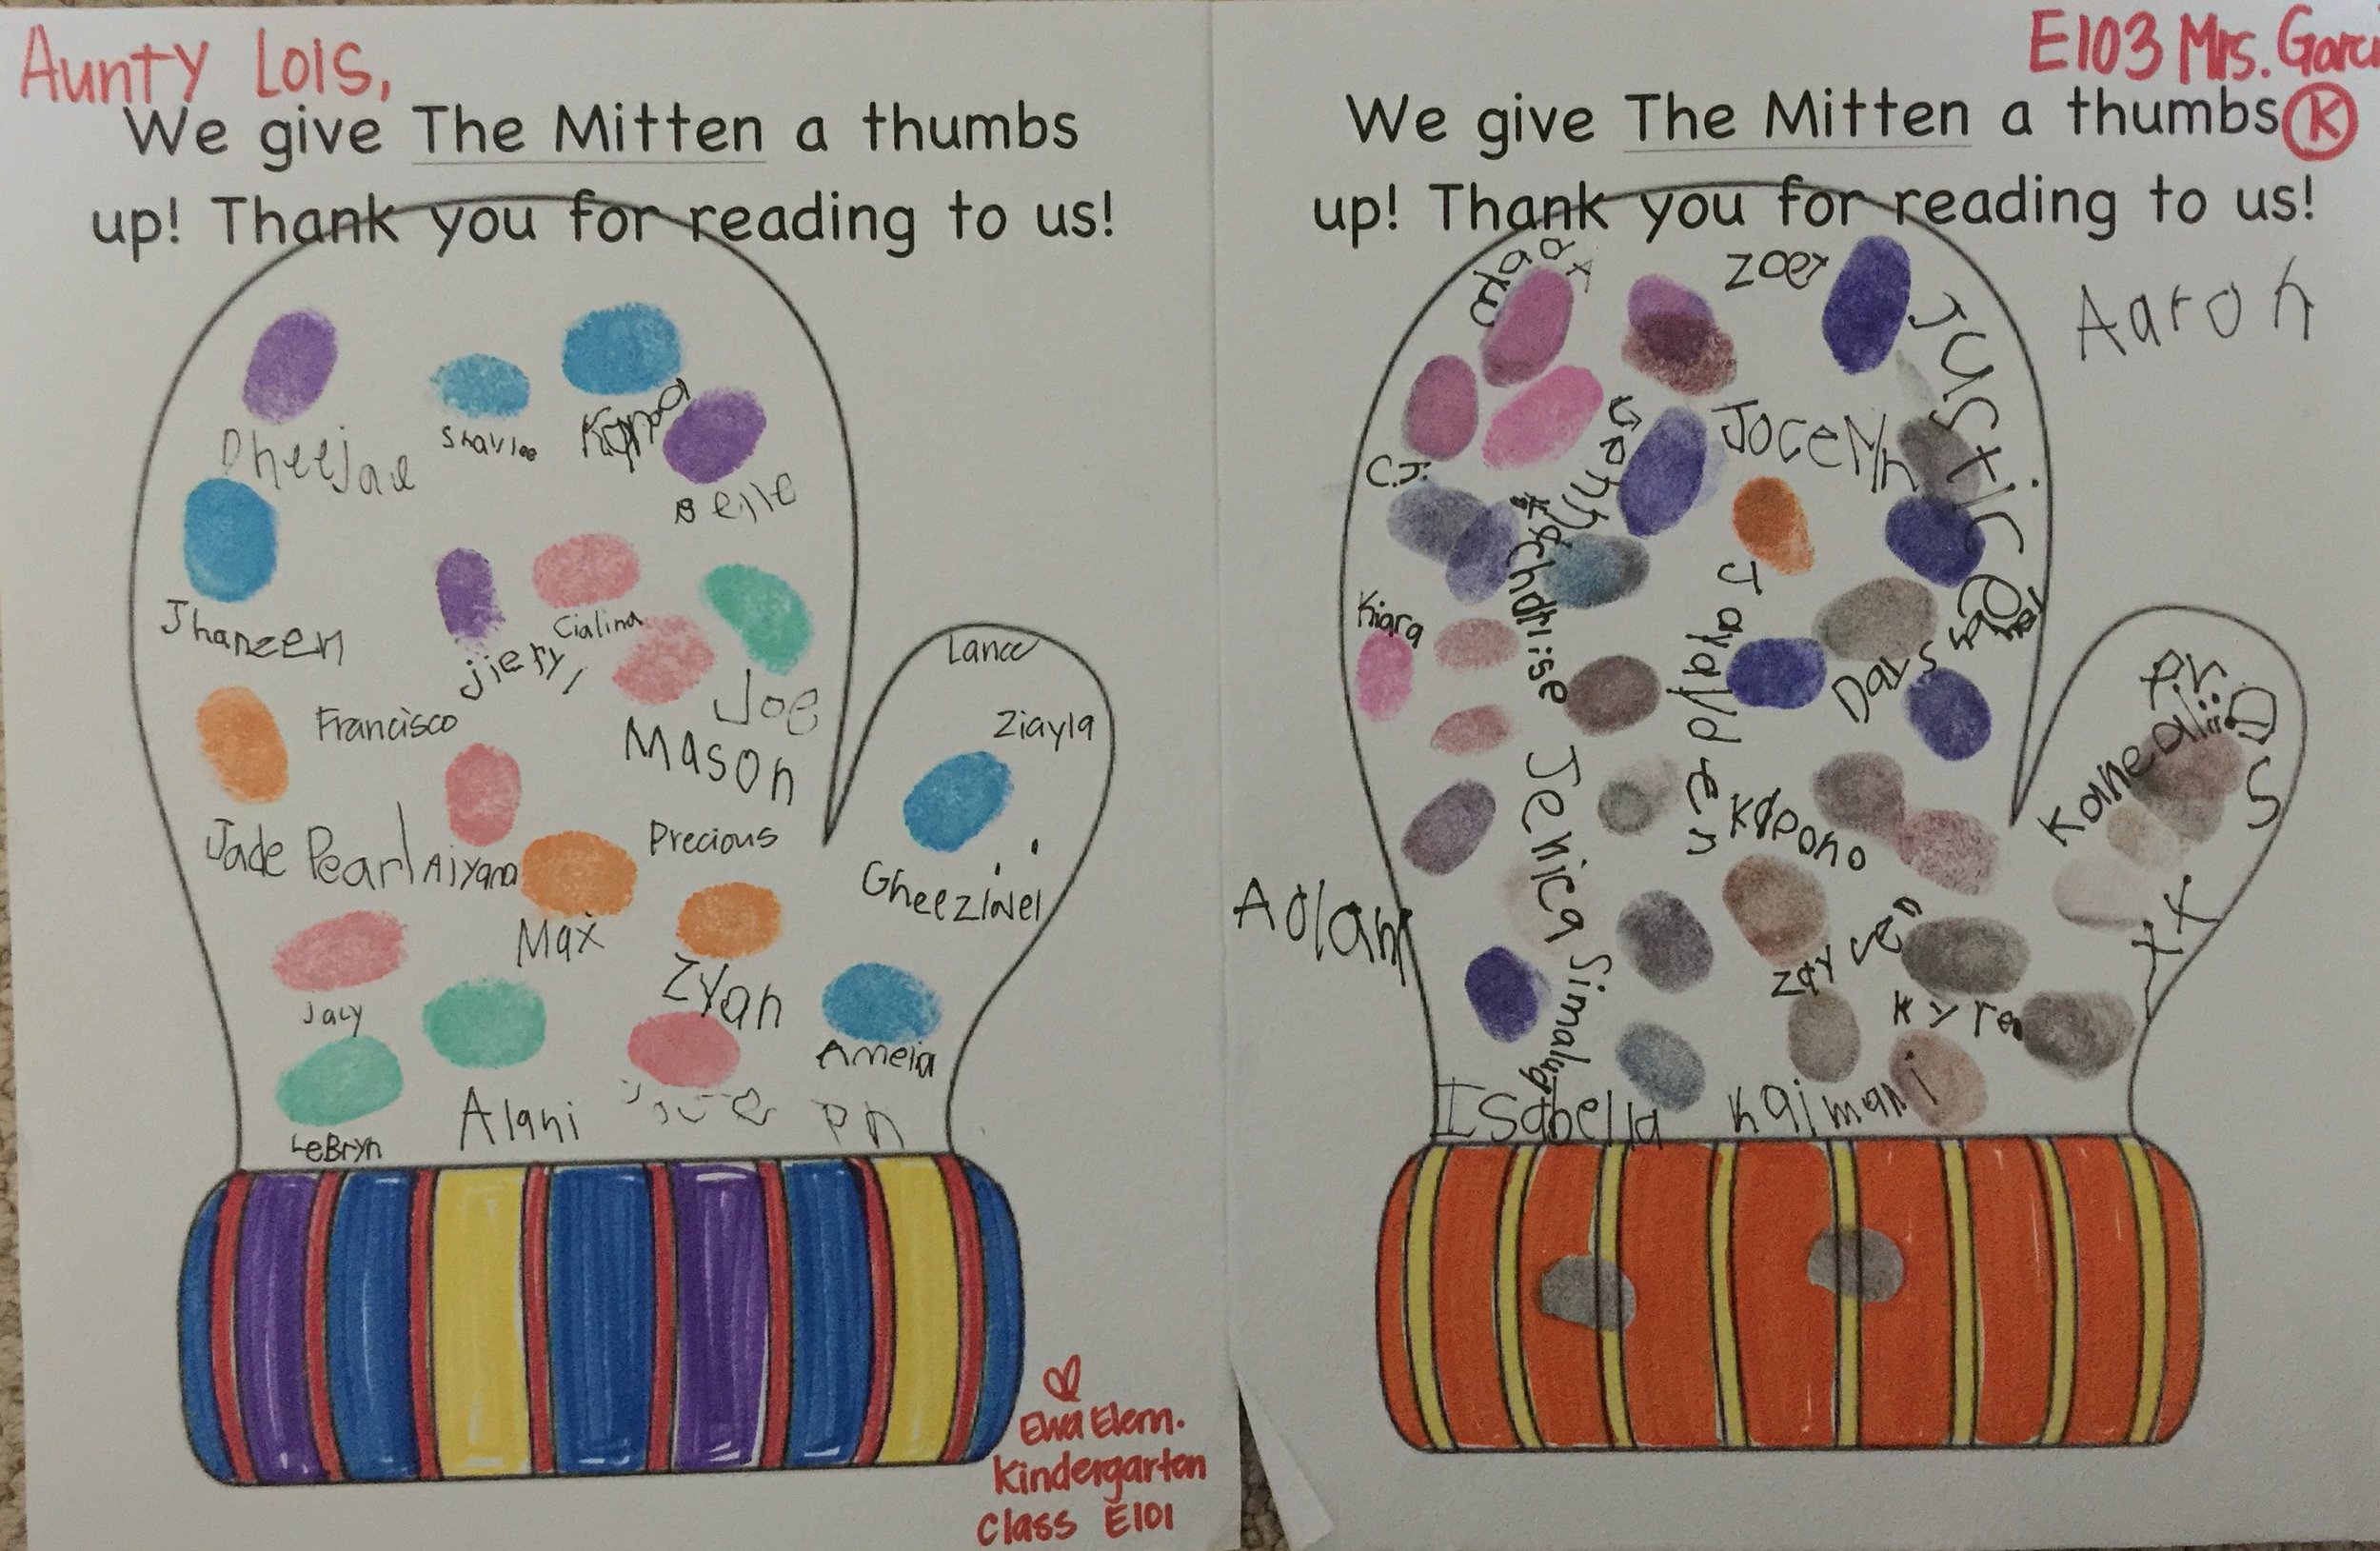 Aunty Lois,
We give The Mitten a thumbs
up! Thank you for reading to us!
Dheejae
Shavlee
Kyna
Belle
Jhanzen
jieryl
Cialina
Joe
Mason
Francisco
Lance
Ziayla
Jade Pearl
Aiyana
Precious
Max
Gheezlnei
Zyan
Jacy
Amelia
Alani
LeBryn
Ewa Elem.
Kindergarten
Class E101
E103 Mrs. Garci
We give The Mitten a thumbs K
up! Thank you for reading to us!
Zoey
Aaron
Justice
Jocelyn
C.J.
Kiara
Jaylden
Days
Kapono
Kamealii
Jerica Simalug
Aolani
Zayven
Kyra
Isabella
Kaimani